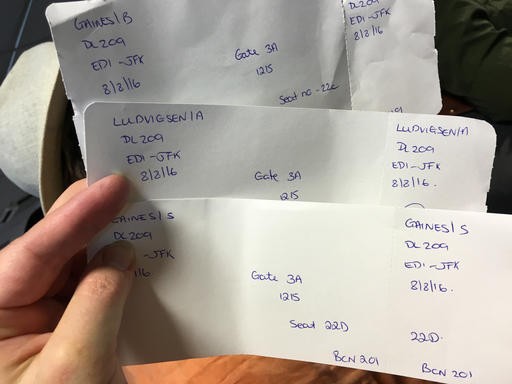 GAINES/B
DL209
EDI-JFK
8/8/16
Gate 3A
1215
Seat no-22c
DL209
EDI-JFK
8/8/16
LUDVIGSEN/A
DL209
EDI-JFK
8/8/16
Gate 3A
1215
LUDVIGSEN/A
DL209
EDI-JFK
8/8/16.
GAINES/S
DL209
-JFK
/16
Gate 3A
1215
Seat 22D
BCN 201
GAINES/S
DL209
EDI-JFK
8/8/16.
22D.
BCN 201